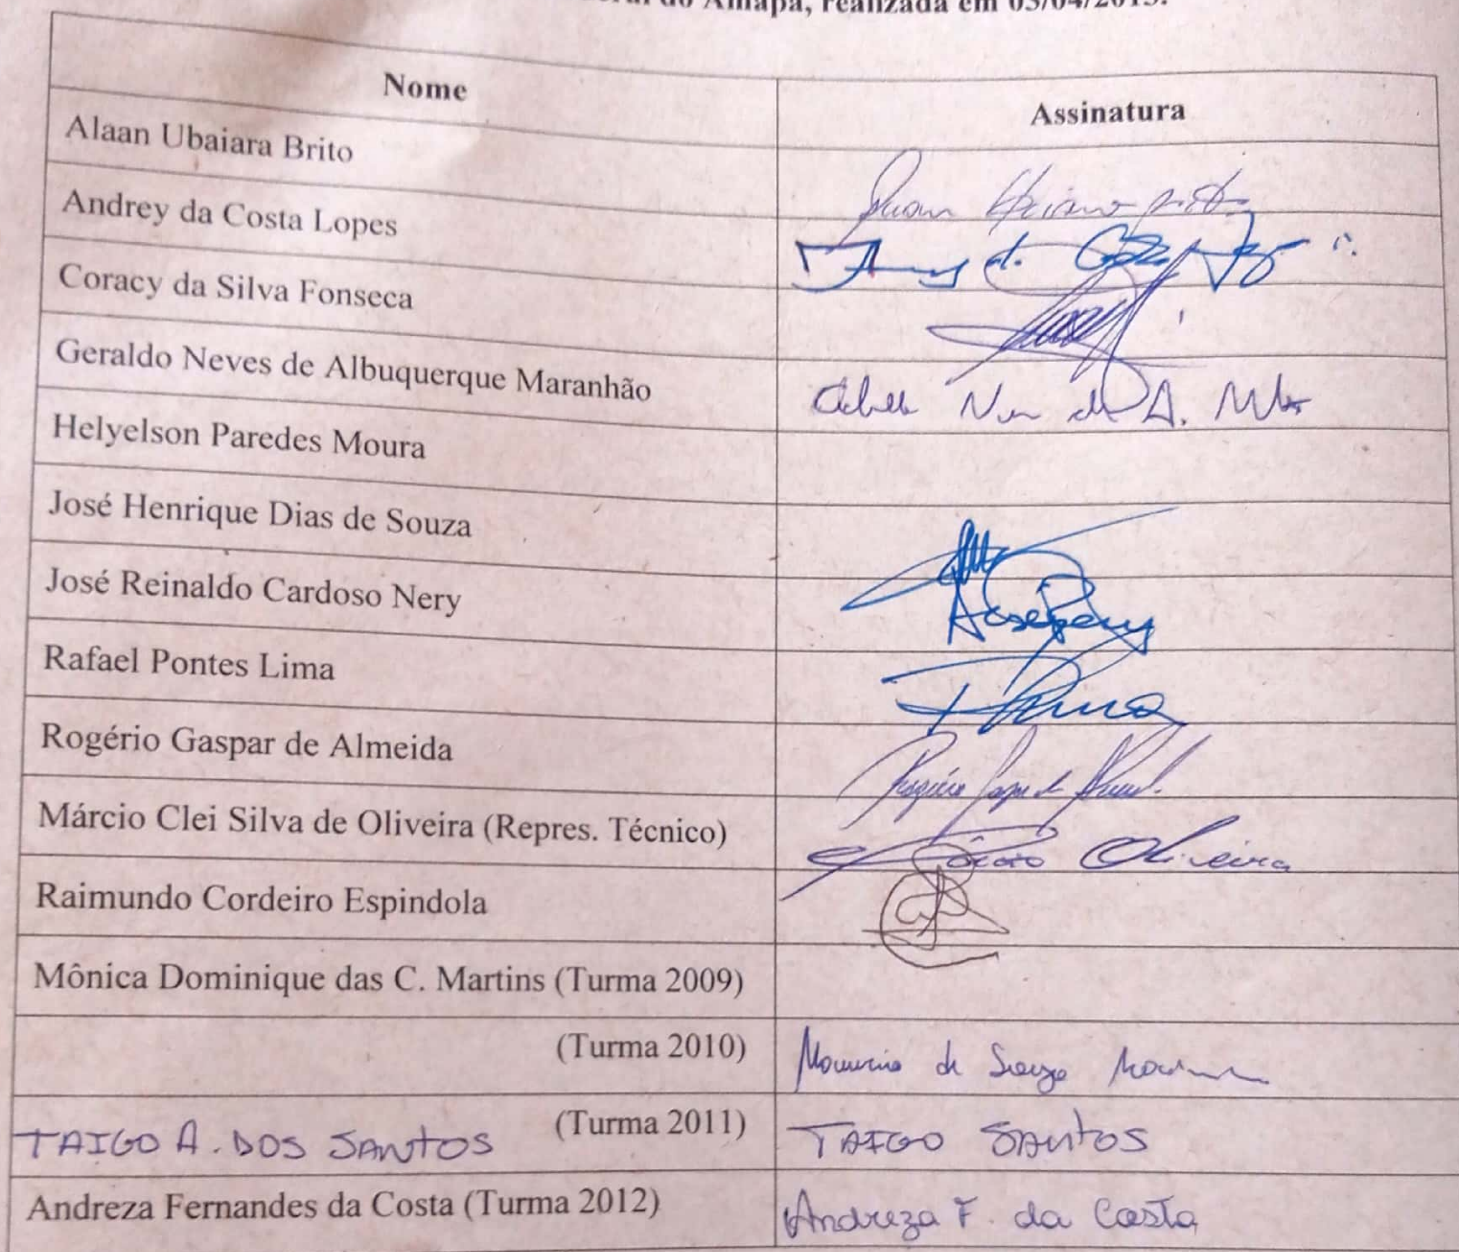 do Amapá, realizada em 03/04/2013.
Nome Assinatura
Alaan Ubaiara Brito
Andrey da Costa Lopes
Coracy da Silva Fonseca
Geraldo Neves de Albuquerque Maranhão
Helyelson Paredes Moura
José Henrique Dias de Souza
José Reinaldo Cardoso Nery
Rafael Pontes Lima
Rogério Gaspar de Almeida
Márcio Clei Silva de Oliveira (Repres. Técnico) Oliveira
Raimundo Cordeiro Espindola
Mônica Dominique das C. Martins (Turma 2009)
(Turma 2010) de Souza
TAIGO A. DOS SANTOS (Turma 2011) TAIGO SANTOS
Andreza Fernandes da Costa (Turma 2012) Andreza F. da Costa